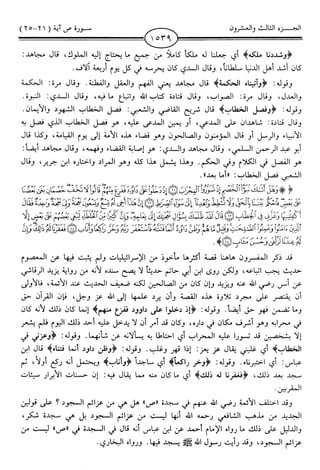 الجـــزء الثالث والعشرون
سـورة صۤ آية (٢١-٢٥)
١٥٣٩
﴿وشددنا ملكه﴾ أي جعلنا له ملكاً كاملاً من جميع ما يحتاج إليه الملوك، قال مجاهد:
كان أشد أهل الدنيا سلطاناً، وقال السدي كان يحرسه في كل يوم أربعة آلاف.
وقوله: ﴿وآتيناه الحكمة﴾ قال مجاهد يعني الفهم والعقل والفطنة. وقال مرة: الحكمة
والعدل، وقال مرة: الصواب، وقال قتادة كتاب الله واتباع ما فيه، وقال السدي: النبوة.
وقوله: ﴿وفصل الخطاب﴾ قال شريح القاضي والشعبي: فصل الخطاب الشهود والأيمان.
وقال قتادة: شاهدان على المدعي، أو يمين المدعى عليه، هو فصل الخطاب الذي فصل به
الأنبياء والرسل أو قال المؤمنون والصالحون وهو قضاء هذه الأمة إلى يوم القيامة، وكذا قال
أبو عبد الرحمن السلمي، وقال مجاهد والسدي: هو إصابة القضاء وفهمه، وقال مجاهد أيضاً:
هو الفصل في الكلام وفي الحكم. وهذا يشمل هذا كله وهو المراد واختاره ابن جرير، وقال
الشعبي فصل الخطاب: «أما بعد».
قد ذكر المفسرون هاهنا قصة أكثرها مأخوذ من الإسرائيليات ولم يثبت فيها عن المعصوم
حديث يجب اتباعه، ولكن روى ابن أبي حاتم حديثاً لا يصح سنده لأنه من رواية يزيد الرقاشي
عن أنس رضي الله عنه ويزيد وإن كان من الصالحين لكنه ضعيف الحديث عند الأئمة، فالأولى
أن يقتصر على مجرد تلاوة هذه القصة وأن يرد علمها إلى الله عز وجل، فإن القرآن حق
وما تضمن فهو حق أيضاً. وقوله: ﴿إذ دخلوا على داوود ففزع منهم﴾ إنما كان ذلك لأنه كان
في محرابه وهو أشرف مكان في داره، وكان قد أمر أن لا يدخل عليه أحد ذلك اليوم فلم يشعر
إلا بشخصين قد تسورا عليه المحراب أي احتاطا به يسألانه عن شأنهما. وقوله: ﴿وعزني في
الخطاب﴾ أي غلبني يقال عز يعز: إذا قهر وغلب. وقوله: ﴿وظن داود أنما فتناه﴾ قال ابن
عباس: أي اختبرناه. وقوله: ﴿وخر راكعاً﴾ أي ساجداً ﴿وأناب﴾ ويحتمل أنه ركع أولاً، ثم
سجد بعد ذلك، ﴿فغفرنا له ذلك﴾ أي ما كان منه مما يقال فيه: إن حسنات الأبرار سيئات
المقربين.
وقد اختلف الأئمة رضي الله عنهم في سجدة «صۤ» هل هي من عزائم السجود ؟ على قولين
الجديد من مذهب الشافعي رحمه الله أنها ليست من عزائم السجود بل هي سجدة شكر،
والدليل على ذلك ما رواه الإمام أحمد عن ابن عباس أنه قال في السجدة في «صۤ» ليست من
عزائم السجود، وقد رأيت رسول الله ﷺ يسجد فيها. ورواه البخاري.